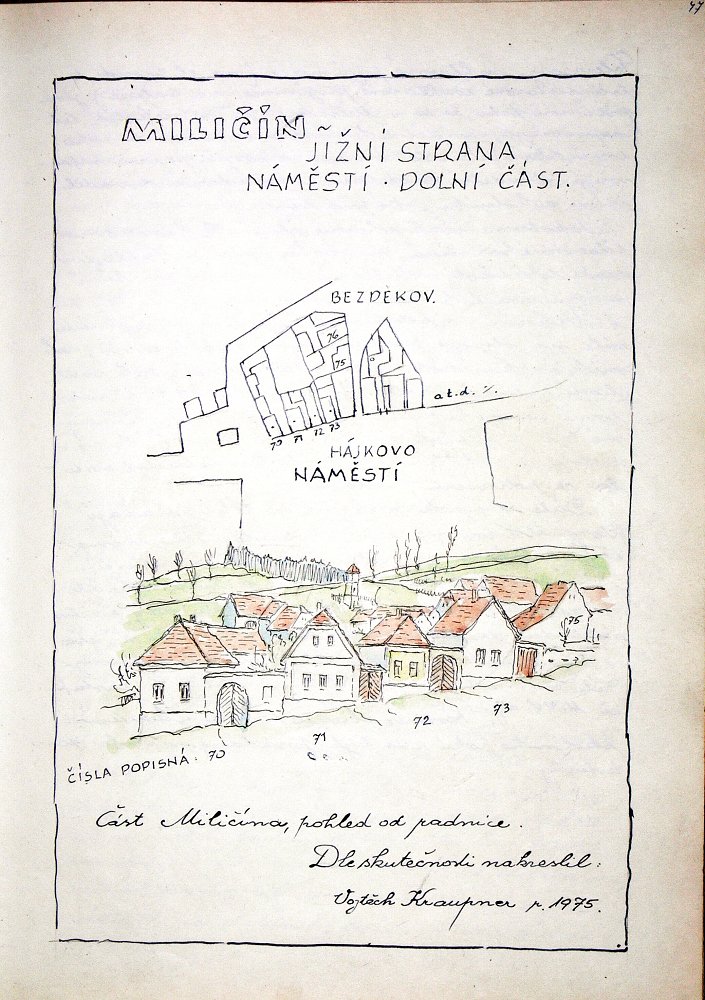 47
MILIČÍN
JÍŽNÍ STRANA
NÁMĚSTÍ · DOLNÍ ČÁST.
BEZDĚKOV.
76
75
a t.d. ·/.
70 71 72 73
HÁJKOVO
NÁMĚSTÍ
75
73
72
71
ČÍSLA POPISNÁ: 70
Část Miličína, pohled od radnice.
Dle skutečnosti nakreslil:
Vojtěch Kraupner r. 1975.